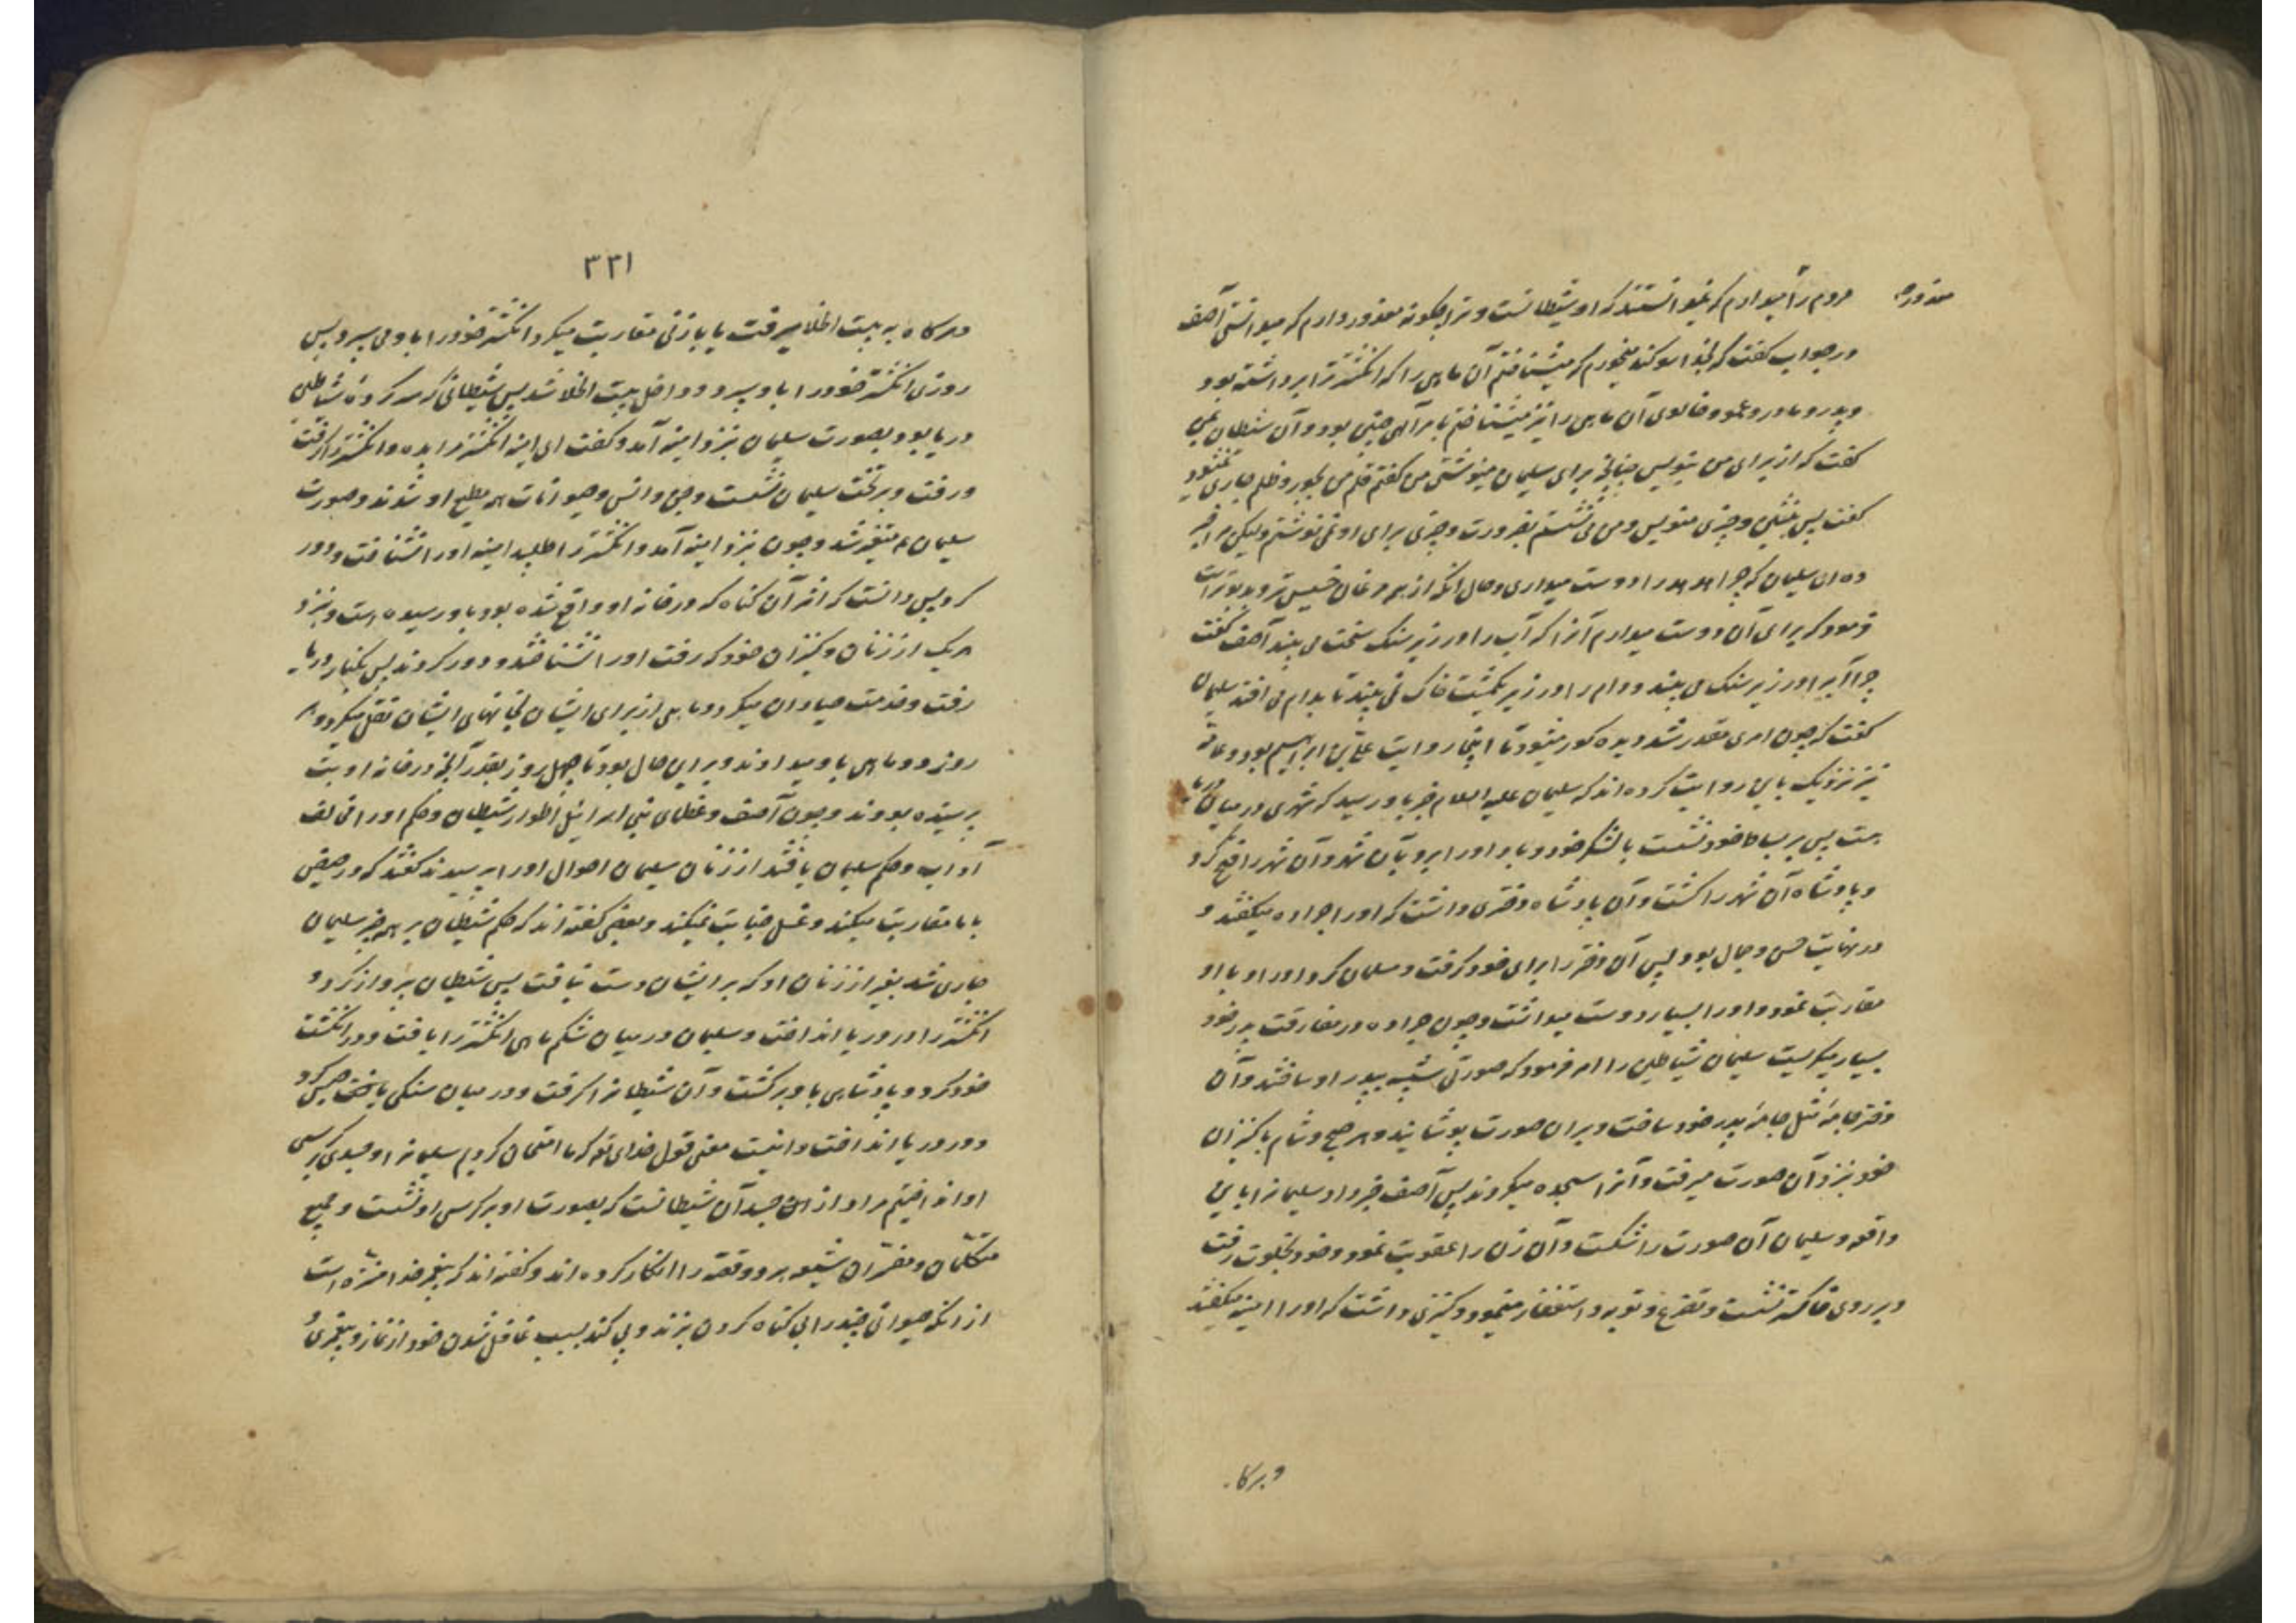 معذور
مردم را میدارم که نمیدانستند که او شیطانست و ترا چگونه معذور دارم که میدانستی آصف
در جواب گفت که بخدا سوگند میخورم که میشناختم آن ماهی را که انگشتر ترا برداشته بود
و پدر و مادر و عمو و خالوی آن ماهی را نیز میشناختم اما امر الهی چنین بود و آن شیطان بمن
گفت که از برای من بنویس چنانچه برای سلیمان مینوشتی من گفتم قلم من بجور و ظلم جاری نمیشود
گفت پس بنشین و چیزی منویس و من می نشستم بضرورت و چیزی برای او نمی نوشتم ولیکن مرا خبر
ده ای سلیمان که چرا هدهد را دوست میداری و حال آنکه از همه مرغان خسیس تر و بدبوتر است
فرمود که برای آن دوست میدارم آنرا که آب را در زیر سنک سخت می بیند آصف گفت
چرا آب را در زیر سنک می بیند و دام را در زیر یکمشت خاک نمی بیند تا بدام می افتد سلیمان
گفت که چون امری مقدر شد دیده کور میشود تا اینجا روایت علی بن ابراهیم بود و عامه
نیز نزدیک باین روایت کرده اند که سلیمان علیه السلام خبر باو رسید که شهری در میان دریا
هست پس بر بساط خود نشست با لشکر خود و باد او را برد بآن شهر و آن شهر را فتح کرد
و پادشاه آن شهر را کشت و آن پادشاه دختری داشت که او را جراده میگفتند و
در نهایت حسن و جمال بود پس آن دختر را برای خود گرفت و مسلمان کرد او را و با او
مقاربت نمود و او را بسیار دوست میداشت و چون جراده در مفارقت پدر خود
بسیار میگریست سلیمان شیاطین را امر فرمود که صورتی شبیه بپدر او ساختند و آن
دختر جامه مثل جامه پدر خود ساخت و بر آن صورت پوشانید و هر صبح و شام با کنیزان
خود بنزد آن صورت میرفت و آنرا سجده میکردند پس آصف خبر داد سلیمانرا باین
واقعه و سلیمان آن صورت را شکست و آن زن را عقوبت نمود و خود بخلوت رفت
و بر روی خاکستر نشست و تضرع و توبه و استغفار مینمود و کنیزی داشت که او را امینه میگفتند
و هرگاه
۳۳۱
و هرگاه به بیت الخلا میرفت یا با زنی مقاربت میکرد انگشتر خود را باو می سپرد پس
روزی انگشتر خود را باو سپرد و داخل بیت الخلا شد پس شیطانی که سرکرده شیاطین
دریا بود بصورت سلیمان بنزد امینه آمد و گفت ای امینه انگشتر مرا بده و انگشتر را گرفت
و رفت و بر تخت سلیمان نشست و جن و انس و حیوانات همه مطیع او شدند و صورت
سلیمان ع متغیر شد و چون بنزد امینه آمد و انگشتر را طلبید امینه او را نشناخت و دور
کرد پس دانست که اثر آن گناه که در خانه او واقع شده بود باو رسیده است و بنزد
هر یک از زنان و کنیزان خود که رفت او را نشناختند و دور کردند پس بکنار دریا
رفت و خدمت صیادان میکرد و ماهی از برای ایشان بخانهای ایشان نقل میکرد و هر
روز دو ماهی باو میدادند و براین حال بود تا چهل روز بقدر آنچه در خانه او بت
پرستیده بودند و چون آصف و عظمای بنی اسرائیل اطوار شیطان و حکم او را مخالف
آداب و حکم سلیمان یافتند از زنان سلیمان احوال او را پرسیدند گفتند که در حیض
با ما مقاربت میکند و غسل جنابت نمیکند و بعضی گفته اند که حکم شیطان بر همه چیز سلیمان
جاری شد بغیر از زنان او که بر ایشان دست نیافت پس شیطان پرواز کرد و
انگشتر را در دریا انداخت و سلیمان در میان شکم ماهی انگشتر را یافت و در انگشت
خود کرد و پادشاهی باو برگشت و آن شیطانرا گرفت و در میان سنگی یافت حبس کرد
و در دریا انداخت و اینست معنی قول خدای تع که ما امتحان کردیم سلیمانرا و جسدی بر کرسی
او انداختیم مراد از این جسد آن شیطانست که بصورت او بر کرسی او نشست و جمیع
متکلمان و مفسران شیعه هر دو قصه را انکار کرده اند و گفته اند که پیغمبر خدا منزه است
از آنکه حیوانی چند را بی گناه گردن بزند و پی کند بسبب غافل شدن خود از نماز و پیغمبری